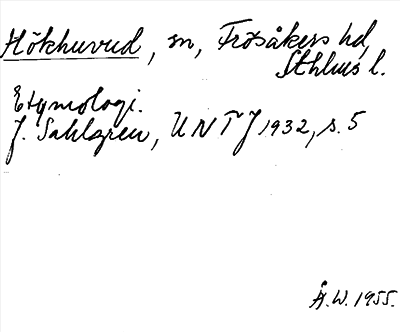 Hökhuvud, sn, Frösåkers hd,
Sthlms l.
Etymologi.
J. Sahlgren, UNTJ 1932, s. 5
Å.W. 1955.